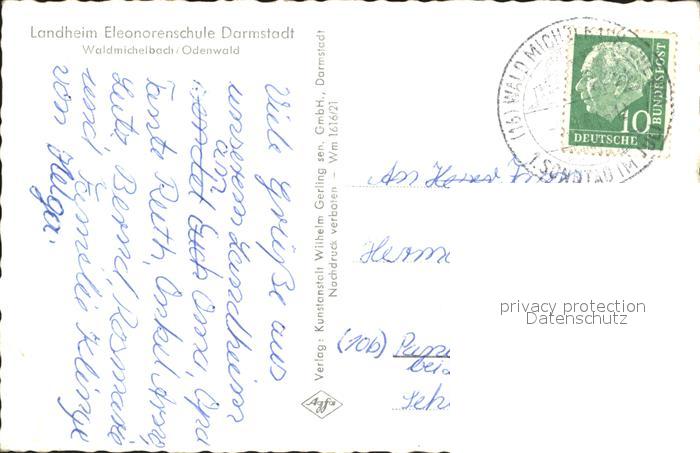 Landheim Eleonorenschule Darmstadt
Waldmichelbach/Odenwald
Viele Grüße aus
unserem Landheim
sendet Euch Oma, Opa
an
Tante Ruth, Onkel
Lutz, Bernd, Rosmarie
und Familie Klinge
von Helga.
Verlag: Kunstanstalt Wilhelm Gerling sen. GmbH., Darmstadt
Nachdruck verboten – Wm 1616/21
Agfa
(16) WALD MICHELBACH
1. SONNTAG IM JULI
10
DEUTSCHE
BUNDESPOST
An
Herm
(10b)
bei
privacy protection
Datenschutz